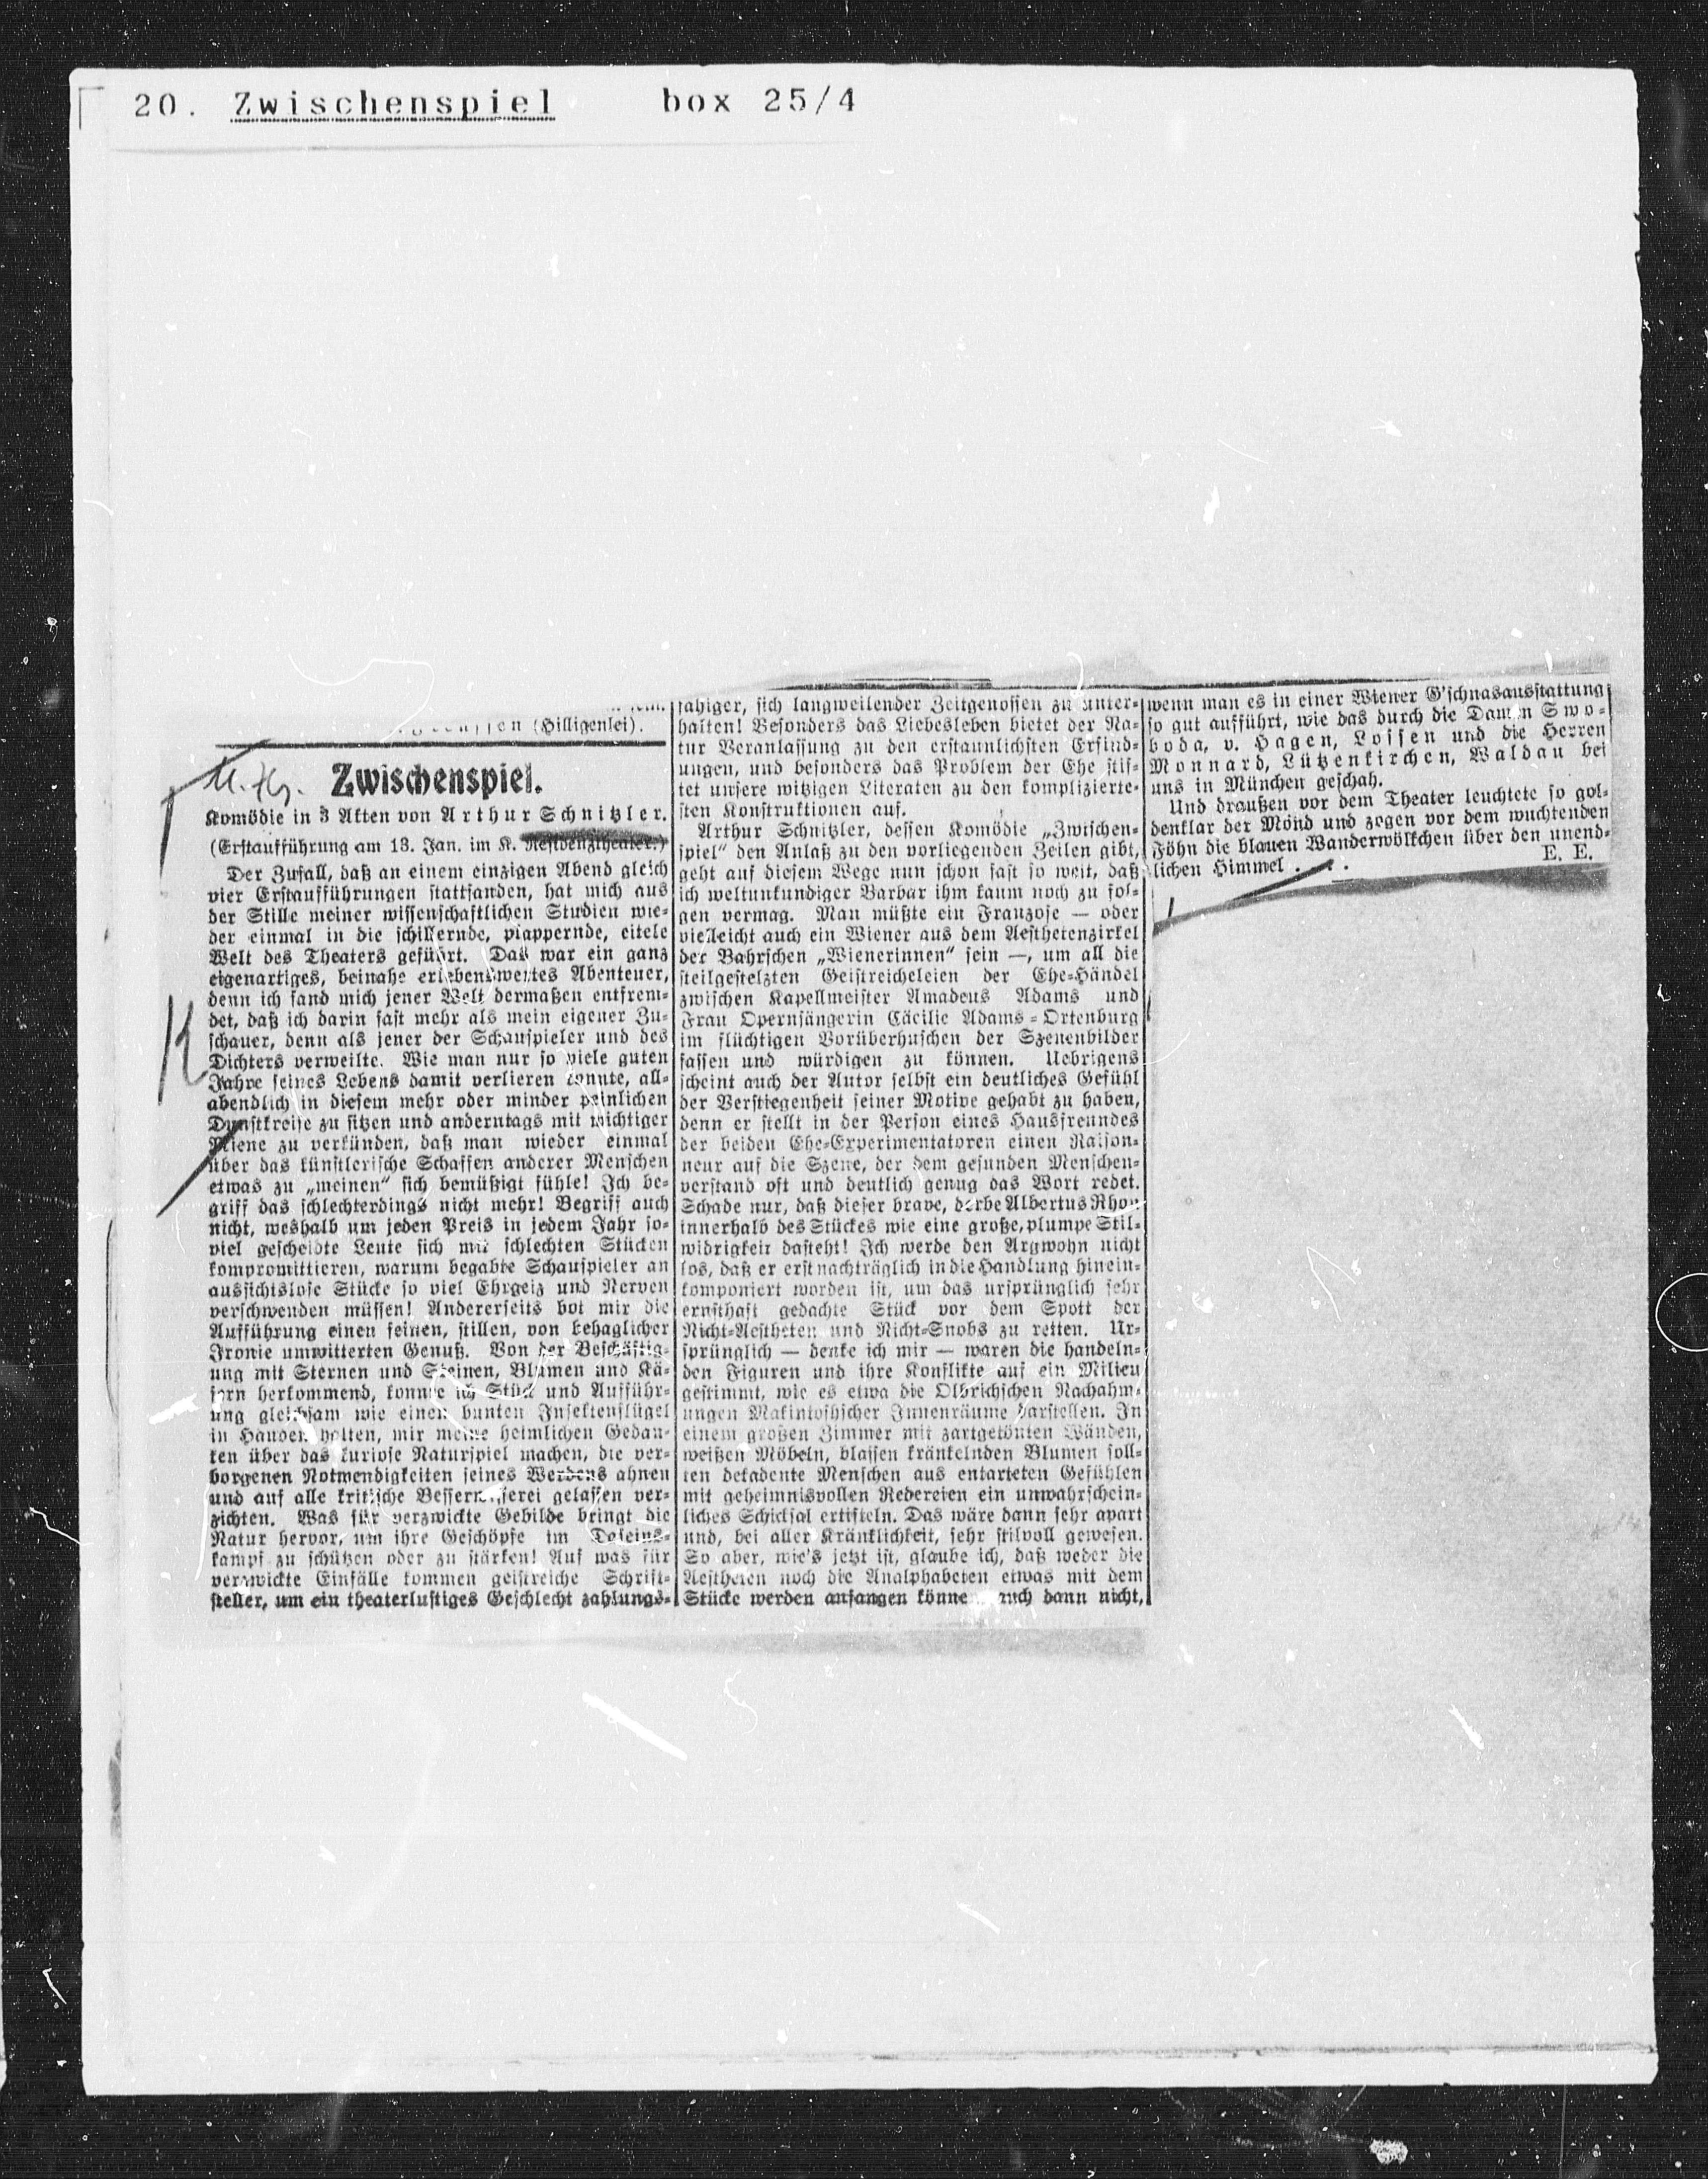 20. Zwischenspiel box 25/4
(Hilligenlei).
Zwischenspiel.
Komödie in 3 Akten von Arthur Schnitzler.
(Erstaufführung am 13. Jan. im K. Residenztheater.)
Der Zufall, daß an einem einzigen Abend gleich
vier Erstaufführungen stattfanden, hat mich aus
der Stille meiner wissenschaftlichen Studien wie-
der einmal in die schillernde, plappernde, eitele
Welt des Theaters geführt. Das war ein ganz
eigenartiges, beinahe erlebenswertes Abenteuer,
denn ich fand mich jener Welt dermaßen entfrem-
det, daß ich darin fast mehr als mein eigener Zu-
schauer, denn als jener der Schauspieler und des
Dichters verweilte. Wie man nur so viele guten
Jahre seines Lebens damit verlieren konnte, all-
abendlich in diesem mehr oder minder peinlichen
Dunstkreise zu sitzen und anderntags mit wichtiger
Miene zu verkünden, daß man wieder einmal
über das künstlerische Schaffen anderer Menschen
etwas zu „meinen“ sich bemüßigt fühle! Ich be-
griff das schlechterdings nicht mehr! Begriff auch
nicht, weshalb um jeden Preis in jedem Jahr so-
viel gescheidte Leute sich mit schlechten Stücken
kompromittieren, warum begabte Schauspieler an
aussichtslose Stücke so viel Ehrgeiz und Nerven
verschwenden müssen! Andererseits bot mir die
Aufführung einen feinen, stillen, von behaglicher
Ironie umwitterten Genuß. Von der Beschäftig-
ung mit Sternen und Steinen, Blumen und Kä-
fern herkommend, konnte ich Stück und Aufführ-
ung gleichsam wie einen bunten Insektenflügel
in Händen halten, mir meine heimlichen Gedan-
ken über das kuriose Naturspiel machen, die ver-
borgenen Notwendigkeiten seines Werdens ahnen
und auf alle kritische Besserwisserei gelassen ver-
zichten. Was für verzwickte Gebilde bringt die
Natur hervor, um ihre Geschöpfe im Daseins-
kampf zu schützen oder zu stärken! Auf was für
verzwickte Einfälle kommen geistreiche Schrift-
steller, um ein theaterlustiges Geschlecht zahlungs-
fähiger, sich langweilender Zeitgenossen zu unter-
halten! Besonders das Liebesleben bietet der Na-
tur Veranlassung zu den erstaunlichsten Erfind-
ungen, und besonders das Problem der Ehe stif-
tet unsere witzigen Literaten zu den komplizierte-
sten Konstruktionen auf.
Arthur Schnitzler, dessen Komödie „Zwischen-
spiel“ den Anlaß zu den vorliegenden Zeilen gibt,
geht auf diesem Wege nun schon fast so weit, daß
ich weltunkundiger Barbar ihm kaum noch zu fol-
gen vermag. Man müßte ein Franzose — oder
vielleicht auch ein Wiener aus dem Aesthetenzirkel
der Bahrschen „Wienerinnen“ sein —, um all die
steilgestelzten Geistreicheleien der Ehe-Händel
zwischen Kapellmeister Amadeus Adams und
Frau Opernsängerin Cäcilie Adams-Ortenburg
im flüchtigen Vorüberhuschen der Szenenbilder
fassen und würdigen zu können. Uebrigens
scheint auch der Autor selbst ein deutliches Gefühl
der Verstiegenheit seiner Motive gehabt zu haben,
denn er stellt in der Person eines Hausfreundes
der beiden Ehe-Experimentatoren einen Raison-
neur auf die Szene, der dem gesunden Menschen-
verstand oft und deutlich genug das Wort redet.
Schade nur, daß dieser brave, derbe Albertus Rhon
innerhalb des Stückes wie eine große, plumpe Stil-
widrigkeit dasteht! Ich werde den Argwohn nicht
los, daß er erst nachträglich in die Handlung hinein-
komponiert worden ist, um das ursprünglich sehr
ernsthaft gedachte Stück vor dem Spott der
Nicht-Aestheten und Nicht-Snobs zu retten. Ur-
sprünglich — denke ich mir — waren die handeln-
den Figuren und ihre Konflikte auf ein Milieu
gestimmt, wie es etwa die Olbrichschen Nachahm-
ungen Makintoshscher Innenräume darstellen. In
einem großen Zimmer mit zartgetönten Wänden,
weißen Möbeln, blassen kränkelnden Blumen soll-
ten dekadente Menschen aus entarteten Gefühlen
mit geheimnisvollen Redereien ein unwahrschein-
liches Schicksal ertifteln. Das wäre dann sehr apart
und, bei aller Kränklichkeit, sehr stilvoll gewesen.
So aber, wie's jetzt ist, glaube ich, daß weder die
Aestheten noch die Analphabeten etwas mit dem
Stücke werden anfangen können auch dann nicht,
wenn man es in einer Wiener G'schnasausstattung
so gut aufführt, wie das durch die Damen Swo-
boda, v. Hagen, Lossen und die Herren
Monnard, Lützenkirchen, Waldau bei
uns in München geschah.
Und draußen vor dem Theater leuchtete so gol-
denklar der Mond und zogen vor dem wuchtenden
Föhn die blauen Wanderwölkchen über den unend-
lichen Himmel . . .
E. E.